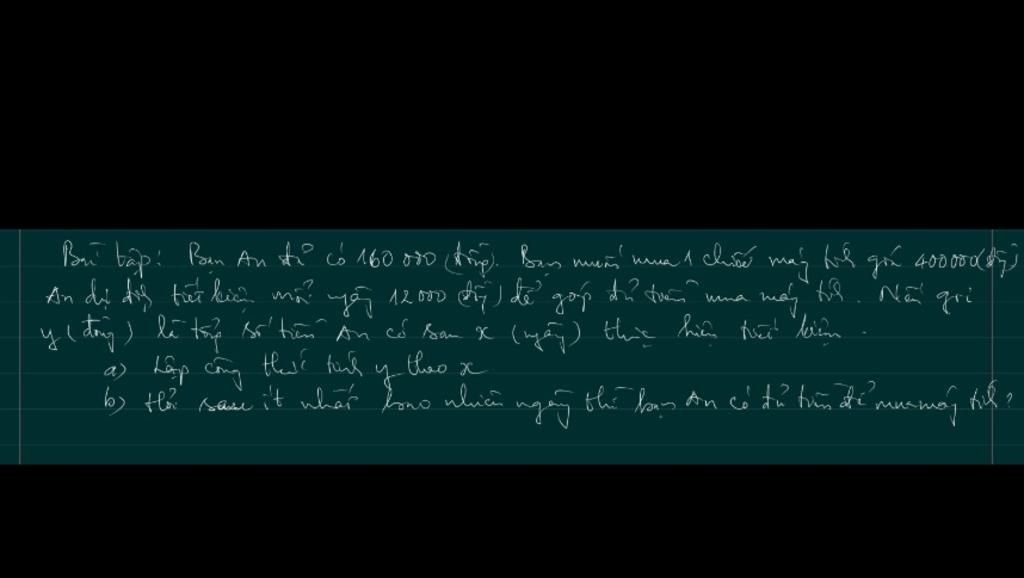 Bài tập: Bạn An đã có 160 000 (đồng). Bạn muốn mua 1 chiếc máy tính giá 400000(đồng)
An dự định tiết kiệm mỗi ngày 12 000 (đồng) để góp đủ tiền mua máy tính. Nếu gọi
y (đồng) là tổng số tiền An có sau x (ngày) thực hiện tiết kiệm.
a) Lập công thức tính y theo x
b) Hỏi sau ít nhất bao nhiêu ngày thì bạn An có đủ tiền để mua máy tính?